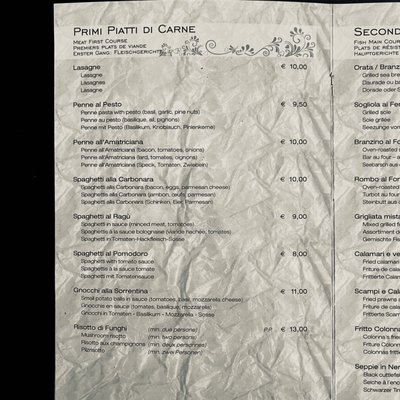 Primi Piatti di Carne
Meat First Course
Premiers plats de viande
Erster Gang: Fleischgerichte
Lasagne € 10,00
Lasagne
Lasagnes
Lasagne
Penne al Pesto € 9,50
Penne pasta with pesto (basil, garlic, pine nuts)
Penne au pesto (basilique, ail, pignons)
Penne mit Pesto (Basilikum, Knoblauch, Pinienkerne)
Penne all'Amatriciana € 10,00
Penne all'Amatriciana (bacon, tomatoes, onions)
Penne all'Amatriciana (lard, tomates, oignons)
Penne all'Amatriciana (Speck, Tomaten, Zwiebeln)
Spaghetti alla Carbonara € 10,00
Spaghetti alla Carbonara (bacon, eggs, parmesan cheese)
Spaghetti alla Carbonara (jambon, oeufs, parmesan)
Spaghetti alla Carbonara (Schinken, Eier, Parmesan)
Spaghetti al Ragù € 9,00
Spaghetti in sauce (minced meat, tomatoes)
Spaghetti à la sauce bolognaise (viande hachée, tomates)
Spaghetti in Tomaten-Hackfleisch-Sosse
Spaghetti al Pomodoro € 8,00
Spaghetti with tomato sauce
Spaghetti à la sauce tomate
Spaghetti mit Tomatensauce
Gnocchi alla Sorrentina € 11,00
Small potato balls in sauce (tomatoes, basil, mozzarella cheese)
Gnocchis en sauce (tomates, basilique, mozzarella)
Gnocchi in Tomaten - Basilikum - Mozzarella - Sosse
Risotto di Funghi (min. due persone) P.P. € 13,00
Mushroom risotto (min. two persons)
Risotto aux champignons (min. deux personnes)
Pilzrisotto (min. zwei Personen)
Second
Fish Main Course
Plats de résist
Hauptgerichte
Orata / Branzin
Grilled sea brea
Daurade ou ba
Dorade oder S
Sogliola ai Fer
Grilled sole
Sole grillée
Seezunge vom
Branzino al Fo
Oven-roasted
Bar au four – a
Im Ofen gebac
Rombo al Forn
Oven-roasted
Turbot au four
Steinbutt aus d
Grigliata mista
Mixed grilled f
Assortiment d
Gemischte Fis
Calamari e ver
Fried calamari
Friture de calam
Frittierte Calam
Scampi e Calam
Fried prawns a
Friture de calam
Frittierte Scam
Fritto Colonna
Colonna's fried
Friture Colonn
Colonnas frittie
Seppie in Nero
Black cuttlefish
Seiche à l'enc
Schwarzer Tin